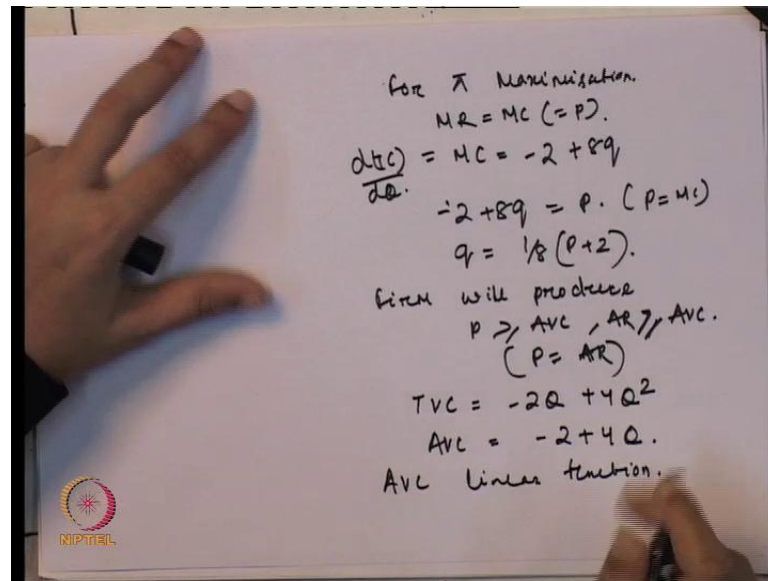 For π Maximisation.
MR = MC (= P).
d(TC)/dQ. = MC = -2 + 8q
-2 + 8q = P. (P = MC)
q = 1/8 (P+2).
Firm will produce
P ⩾ AVC , AR ⩾ AVC.
(P = AR)
TVC = -2Q + 4Q²
AVC = -2 + 4Q.
AVC linear function.
NPTEL